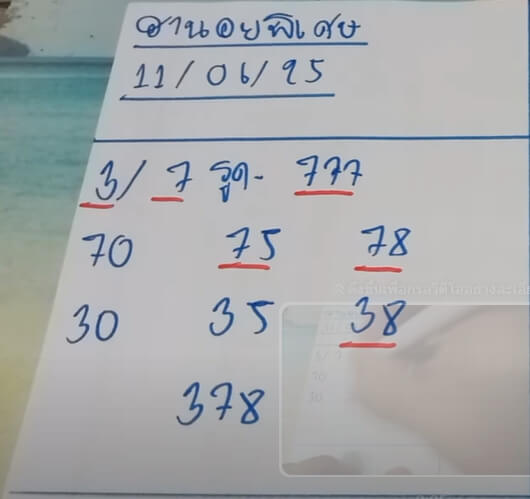 ฮานอยพิเศษ
11/06/25
3/7 รูด- 777
70 75 78
30 35 38
378